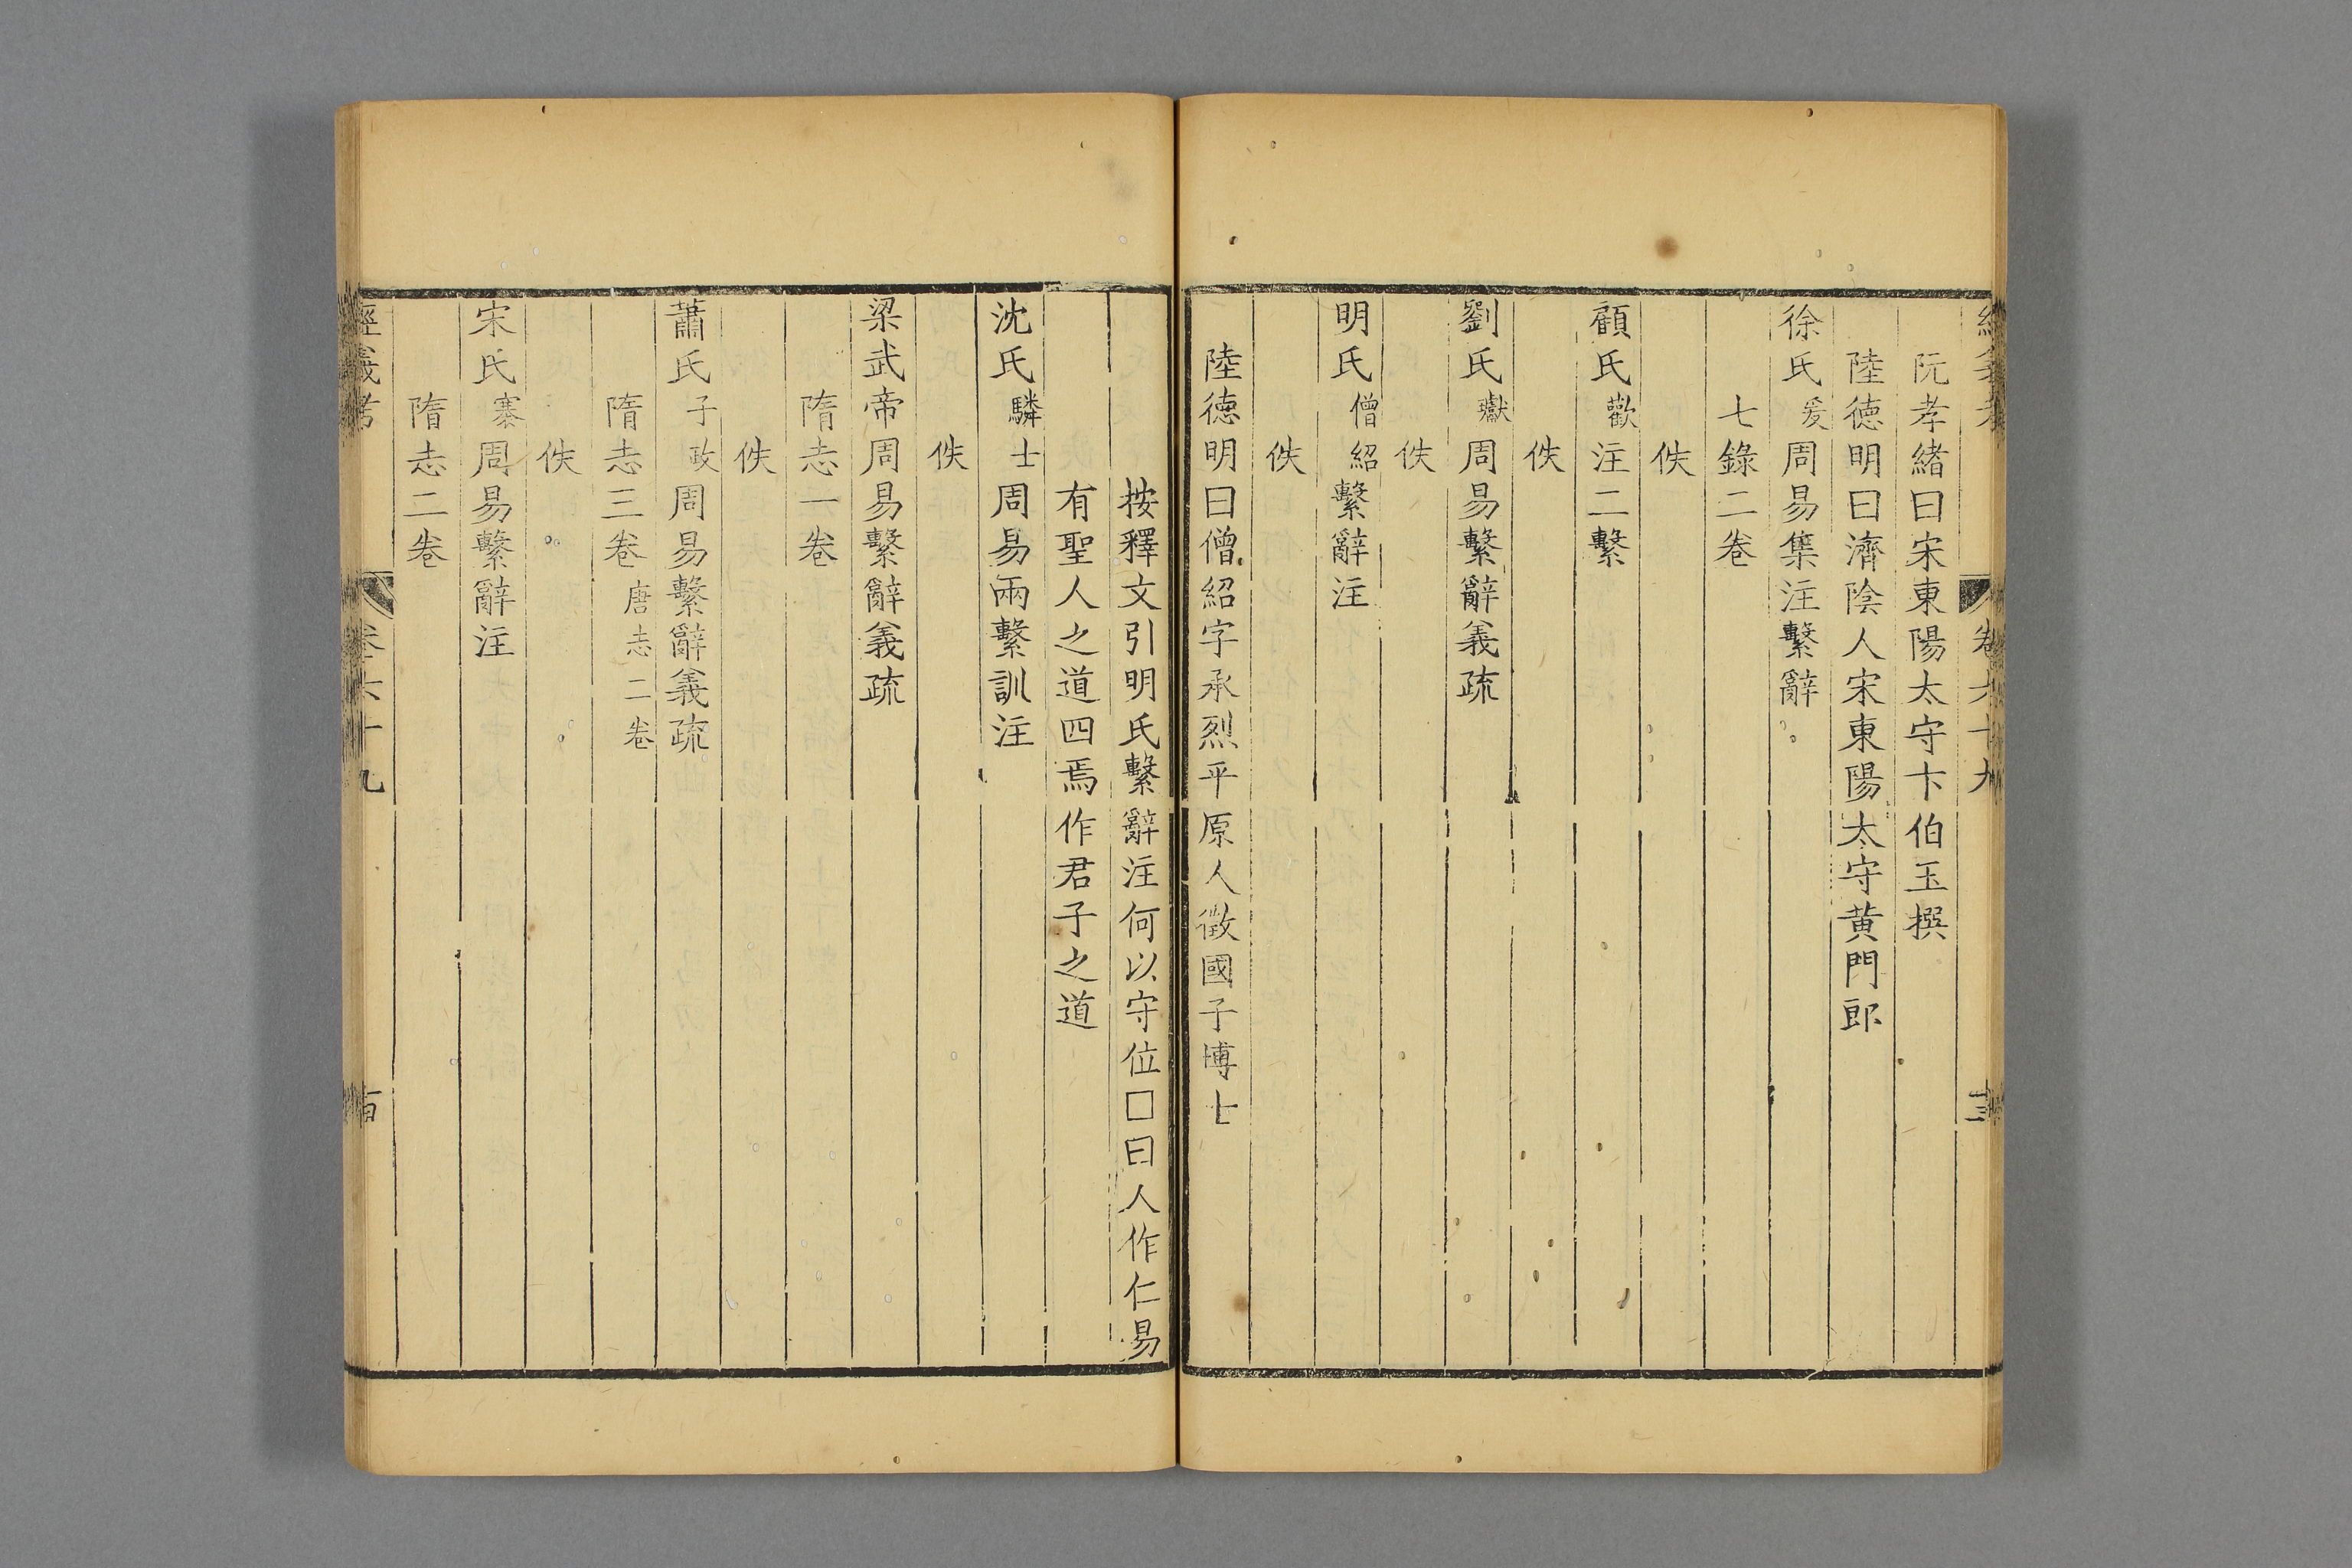 阮孝緒曰宋東陽太守卞伯玉撰
陸德明曰濟陰人宋東陽太守黃門郎
徐氏爰周易集注繫辭
七錄二卷
佚
顧氏歡注二繫
佚
劉氏瓛周易繫辭義疏
佚
明氏僧紹繫辭注
佚
陸德明曰僧紹字承烈平原人徵國子博士
按釋文引明氏繫辭注何以守位□曰人作仁易
有聖人之道四焉作君子之道
沈氏驎士周易兩繫訓注
佚
梁武帝周易繫辭義疏
隋志一卷
佚
蕭氏子政周易繫辭義疏
隋志三卷唐志二卷
佚
宋氏褰周易繫辭注
隋志二卷
經義考 卷六十九